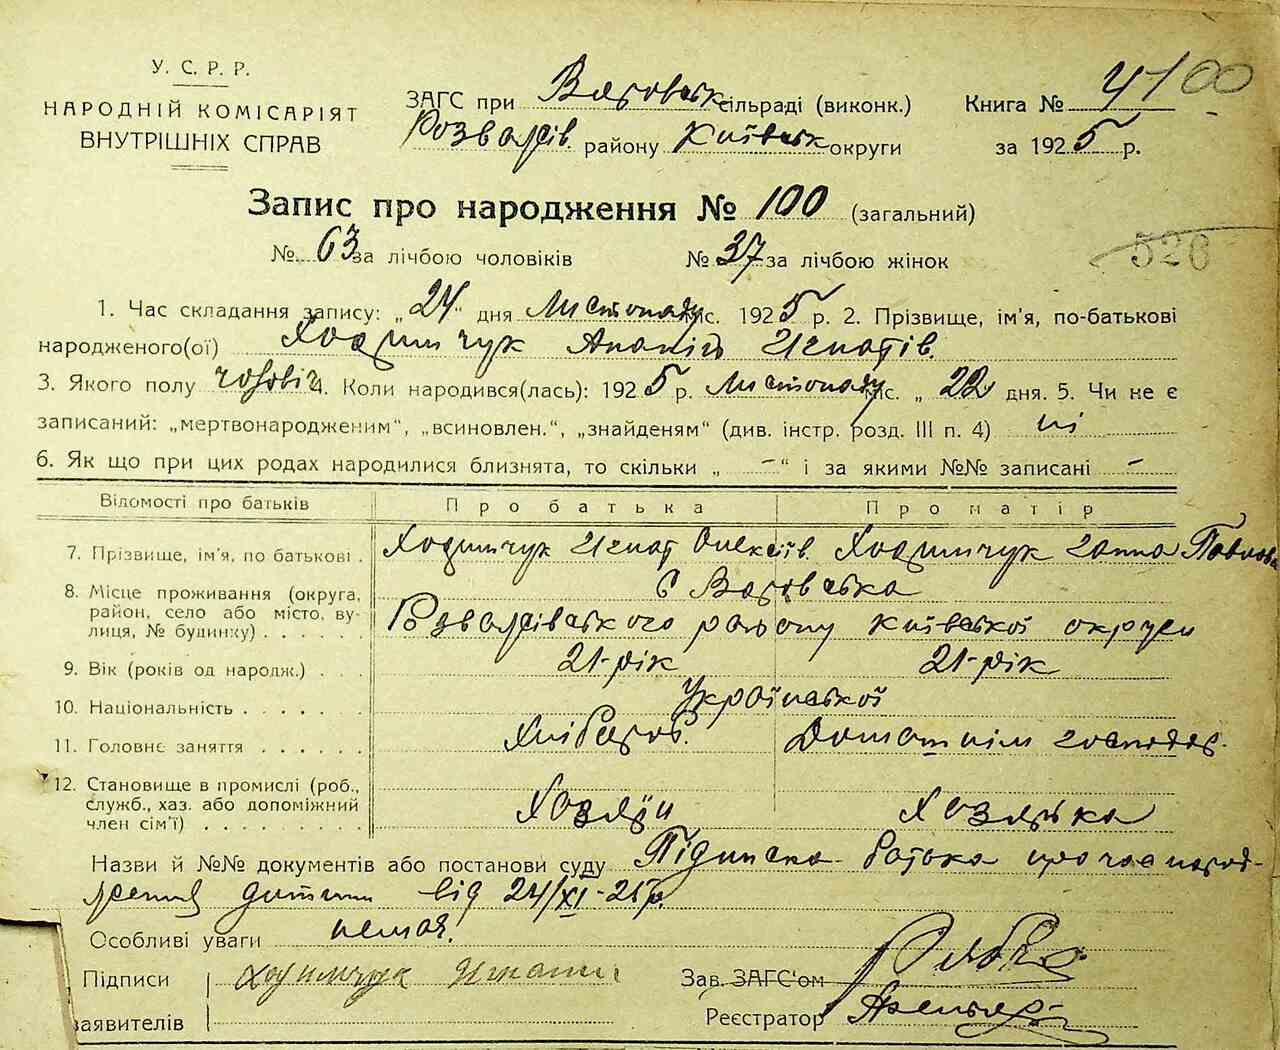 У. С. Р. Р.
НАРОДНІЙ КОМІСАРІЯТ
ВНУТРІШНІХ СПРАВ
ЗАГС при сільраді (виконк.)
Розважів. району Київськ округи
Книга № 4
за 1925 р.
100
Запис про народження № 100 (загальний)
№ 63 за лічбою чоловіків № 37 за лічбою жінок
526
1. Час складання запису: „24" дня Листопаду міс. 1925 р. 2. Прізвище, ім'я, по-батькові
народженого(ої) Ходимчук Ананій Игнатів.
3. Якого полу чоловіч 4. Коли народився(лась): 1925 р. Листопаду міс. „ 22 дня. 5. Чи не є
записаний: „мертвонародженим", „всиновлен.", „знайденям" (див. інстр. розд. III п. 4) ні
6. Як що при цих родах народилися близнята, то скільки „ - " і за якими №№ записані -
Відомості про батьків Про батька Про матір
7. Прізвище, ім'я, по батькові . Ходимчук Игнат Олексіїв. Ходимчук Ганна Павлова
8. Місце проживання (округа,
район, село або місто, вулиця, № будинку) . . . . . Розважівського району Київської округи
9. Вік (років од народж.) . . . 21-рік 21-рік
10. Національність . . . . . . Української
11. Головнє заняття . . . . . . Хлібороб. Домашнім господар.
12. Становище в промислі (роб.,
служб., хаз. або допоміжний
член сім'ї) . . . . . . . . Хозяїн Хозяйка
Назви й №№ документів або постанови суду Підписка батька про час народ-
ження дитини від 24/XI-25 р.
Особливі уваги немає.
Підписи Ходимчук Зав. ЗАГС'ом
заявителів Реєстратор